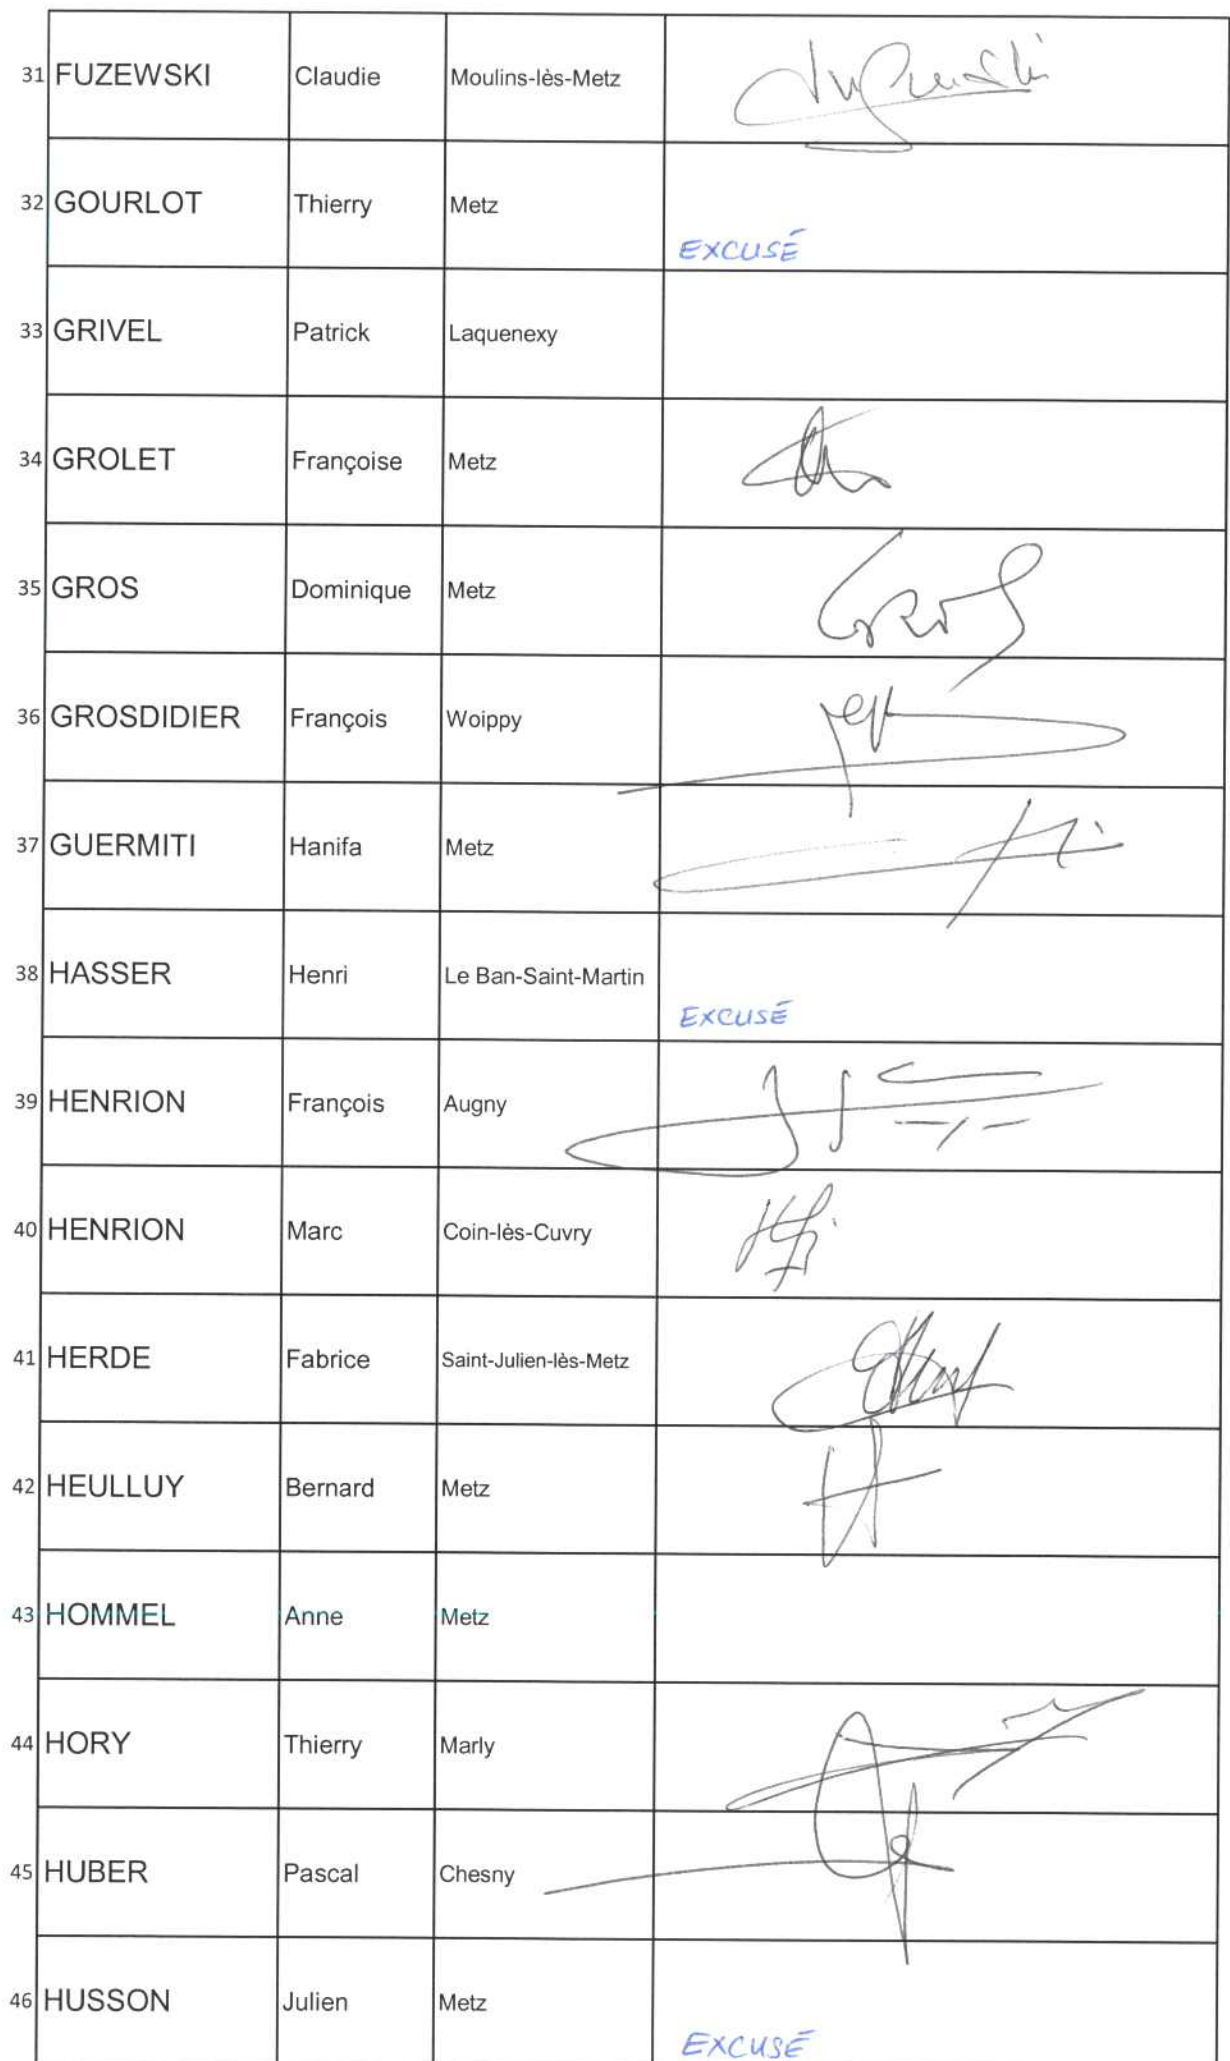 31 FUZEWSKI Claudie Moulins-lès-Metz
32 GOURLOT Thierry Metz EXCUSÉ
33 GRIVEL Patrick Laquenexy
34 GROLET Françoise Metz
35 GROS Dominique Metz
36 GROSDIDIER François Woippy
37 GUERMITI Hanifa Metz
38 HASSER Henri Le Ban-Saint-Martin EXCUSÉ
39 HENRION François Augny
40 HENRION Marc Coin-lès-Cuvry
41 HERDE Fabrice Saint-Julien-lès-Metz
42 HEULLUY Bernard Metz
43 HOMMEL Anne Metz
44 HORY Thierry Marly
45 HUBER Pascal Chesny
46 HUSSON Julien Metz EXCUSÉ